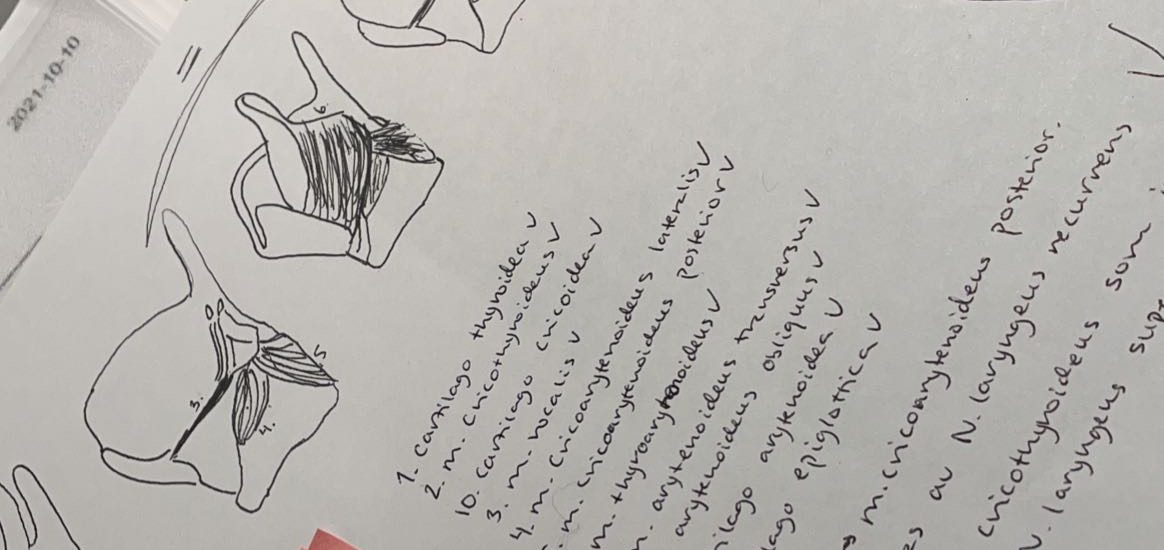 2021-10-10
6.
5
3.
4.
1. cartilago thyroidea ✓
2. m. cricothyroideus ✓
10. cartilago cricoidea ✓
3. m. vocalis ✓
4. m. cricoarytenoideus lateralis ✓
. m. cricoarytenoideus posterior ✓
m. thyroarytenoideus ✓
. arytenoideus transversus ✓
arytenoideus obliquus ✓
ilago arytenoidea ✓
lago epiglottica ✓
m. cricoarytenoideus posterior.
es av N. laryngeus recurrens
cricothyroideus som i
. laryngeus supe